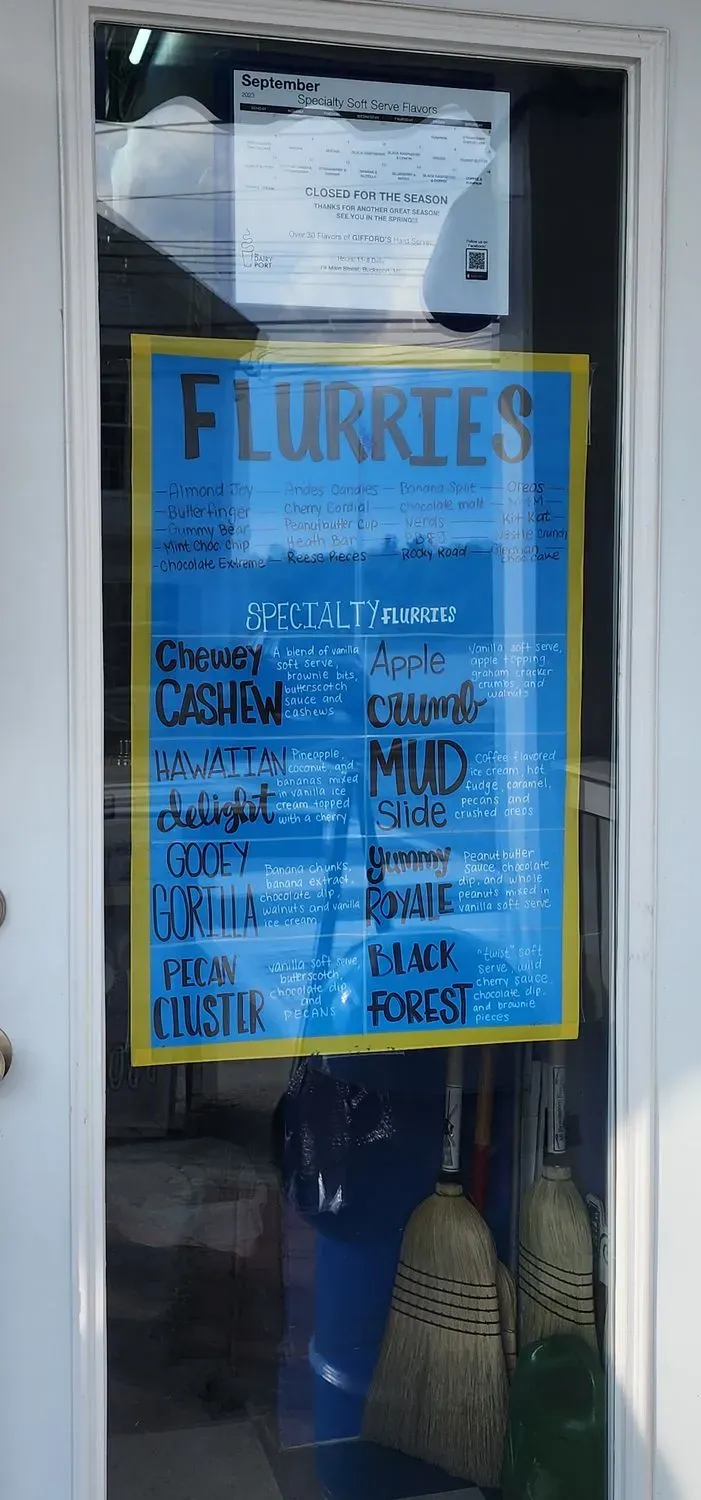 September
2023
Specialty Soft Serve Flavors
CLOSED FOR THE SEASON
THANKS FOR ANOTHER GREAT SEASON!
SEE YOU IN THE SPRING!!!
Over 30 Flavors of GIFFORD'S Hard Serve
Follow us on
Facebook!
DAIRY
PORT
Main Street, Bucksport,
FLURRIES
-Almond Joy - Andes Candies - Banana Split - Oreos
-Butterfinger - Cherry Cordial - chocolate malt - M&M
-Gummy Bear - Peanutbutter Cup - Nerds - Kit Kat
-Mint Choc. Chip - Heath Bar - PB&J - Nestle Crunch
-Chocolate Extreme - Reese Pieces - Rocky Road - German
Choc Cake
SPECIALTY FLURRIES
Chewey
CASHEW
A blend of vanilla
soft serve,
brownie bits,
butterscotch
sauce and
cashews
Apple
crumb
Vanilla soft serve,
apple topping,
graham cracker
crumbs, and
walnuts
HAWAIIAN
delight
Pineapple,
coconut, and
bananas mixed
in vanilla ice
cream topped
with a cherry
MUD
Slide
Coffee flavored
ice cream, hot
fudge, caramel,
pecans and
crushed oreos
GOOEY
GORILLA
Banana chunks,
banana extract,
chocolate dip,
walnuts and vanilla
ice cream
yummy
ROYALE
Peanut butter
sauce, chocolate
dip, and whole
peanuts mixed in
vanilla soft serve
PECAN
CLUSTER
vanilla soft serve,
butterscotch,
chocolate dip
and
PECANS
BLACK
FOREST
"twist" soft
serve, wild
cherry sauce,
chocolate dip,
and brownie
pieces